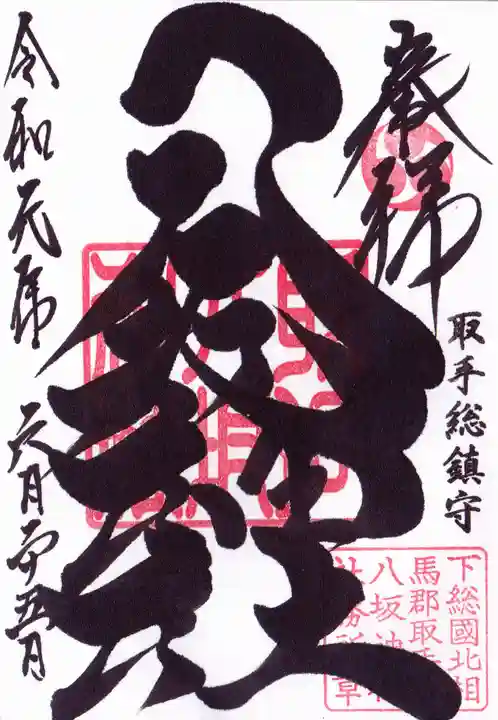 奉拝
取手総鎮守
八坂神社
令和元年 六月二十五日
下総國北相
馬郡取手
八坂神社